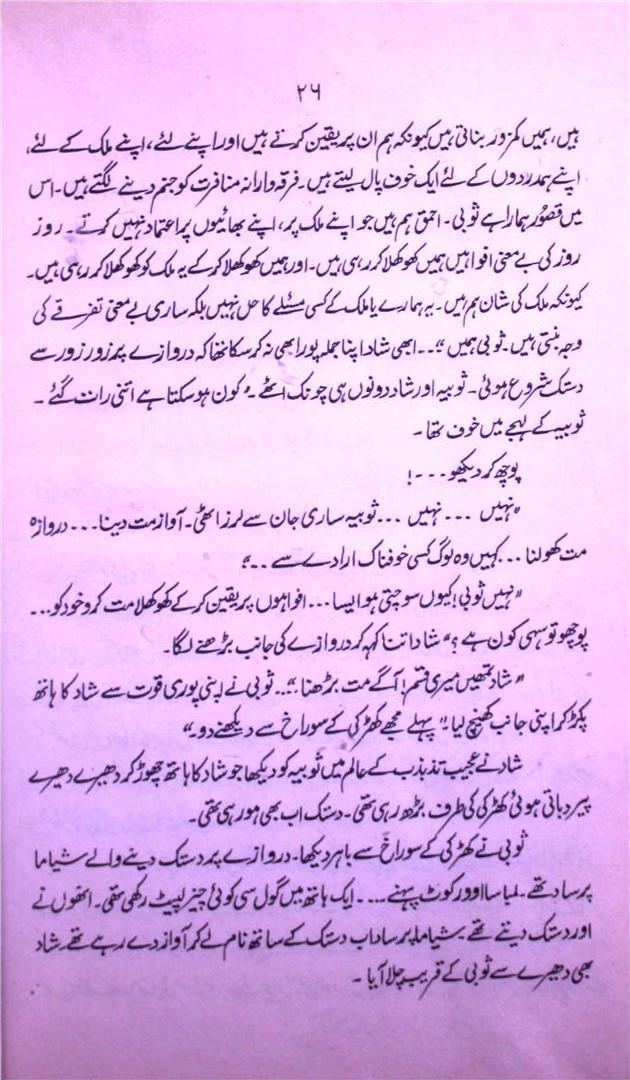 ۲۶
ہیں، ہمیں کمزور بناتی ہیں کیونکہ ہم ان پر یقین کرتے ہیں اور اپنے لئے، اپنے ملک کے لئے،
اپنے ہمدردوں کے لئے ایک خوف پال لیتے ہیں۔ فرقہ وارانہ منافرت کو جنم دینے لگتے ہیں۔ اس
میں قصور ہمارا ہے ثوبی۔ احمق ہم ہیں جو اپنے ملک پر، اپنے بھائیوں پر اعتماد نہیں کرتے۔ روز
روز کی بے معنی افواہیں ہمیں کھوکھلا کر رہی ہیں۔ اور ہمیں کھوکھلا کر کے یہ ملک کو کھوکھلا کر رہی ہیں۔
کیونکہ ملک کی شان ہم ہیں۔ یہ ہمارے یا ملک کے کسی مسئلے کا حل نہیں بلکہ ساری بے معنی تفرقے کی
وجہ بنتی ہیں۔ ثوبی ہمیں“... ابھی شاد اپنا جملہ پورا بھی نہ کر سکا تھا کہ دروازے پر زور زور سے
دستک شروع ہوئی۔ ثوبیہ اور شاد دونوں ہی چونک اٹھے۔ ”کون ہو سکتا ہے اتنی رات گئے۔
ثوبیہ کے لہجے میں خوف تھا۔
پوچھ کر دیکھو...!
”نہیں ... نہیں ... ثوبیہ ساری جان سے لرز اٹھی۔ آواز مت دینا... دروازہ
مت کھولنا... کہیں وہ لوگ کسی خوفناک ارادے سے ..“
”نہیں ثوبی! کیوں سوچتی ہو ایسا... افواہوں پر یقین کر کے کھوکھلا مت کرو خود کو...
پوچھو تو سہی کون ہے؟“ شاد اتنا کہہ کر دروازے کی جانب بڑھنے لگا۔
”شاد تمہیں میری قسم! آگے مت بڑھنا“... ثوبی نے اپنی پوری قوت سے شاد کا ہاتھ
پکڑ کر اپنی جانب کھینچ لیا۔ ”پہلے مجھے کھڑکی کے سوراخ سے دیکھنے دو۔“
شاد نے عجیب تذبذب کے عالم میں ثوبیہ کو دیکھا جو شاد کا ہاتھ چھوڑ کر دھیرے دھیرے
پیر دباتی ہوئی کھڑکی کی طرف بڑھ رہی تھی۔ دستک اب بھی ہو رہی تھی۔
ثوبی نے کھڑکی کے سوراخ سے باہر دیکھا۔ دروازے پر دستک دینے والے شیاما
پرساد تھے۔ لمبا سا اوور کوٹ پہنے.... ایک ہاتھ میں گول سی کوئی چیز لپیٹ رکھی تھی۔ انھوں نے
اور دستک دیتے تھے۔ شیاما پرساد اب دستک کے ساتھ نام لے کر آواز دے رہے تھے۔ شاد
بھی دھیرے سے ثوبی کے قریب چلا آیا۔